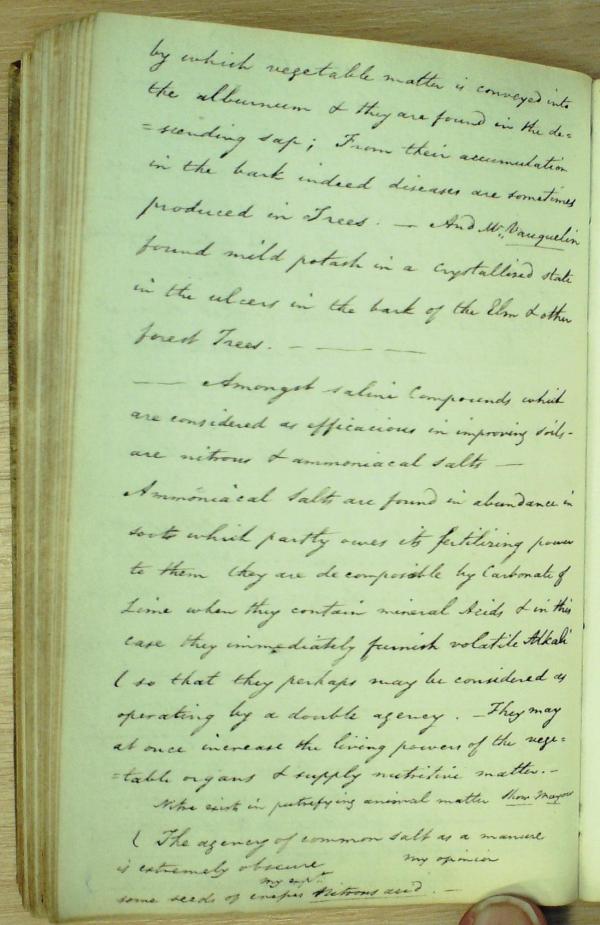 by which vegetable matter is conveyed into
the alburnum & they are found in the de=
=scending sap; From their accumulation
in the bark indeed diseases are sometimes
produced in Trees. — And Mr. Vauquelin
found mild potash in a crystallised state
in the ulcers in the bark of the Elm & other
forest Trees. — — —
— Amongst saline Compounds which
are considered as efficacious in improving soils-
are nitrous & ammoniacal salts —
Ammoniacal Salts are found in abundance in
soots which partly owes its fertilizing power
to them they are decomposible by Carbonate of
Lime when they contain mineral Acids & in this
case they immediately furnish volatile Alkali
( so that they perhaps may be considered as
operating by a double agency. — They may
at once increase the living powers of the vege=
=table organs & supply nutritive matter. -
Nitre exists in putrefying animal matter Show
( The agency of common salt as a manure
is extremely obscure my opinion
my expts
some seeds of Nitrous acid. —